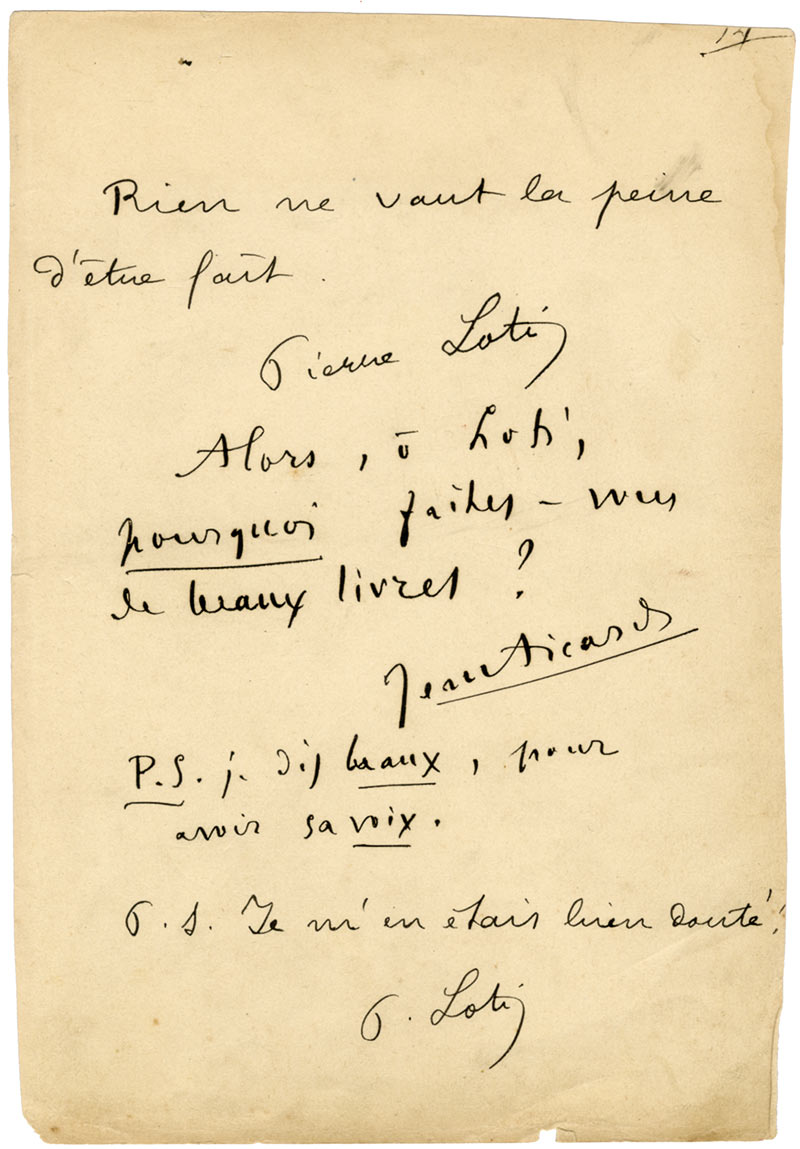 Rien ne vaut la peine
d'être fait.
Pierre Loti
Alors, ô Loti,
pourquoi faites-vous
de beaux livres ?
Jean Aicard
P.S. je dis beaux, pour
avoir sa voix.
P.S. Je m'en étais bien douté !
P. Loti